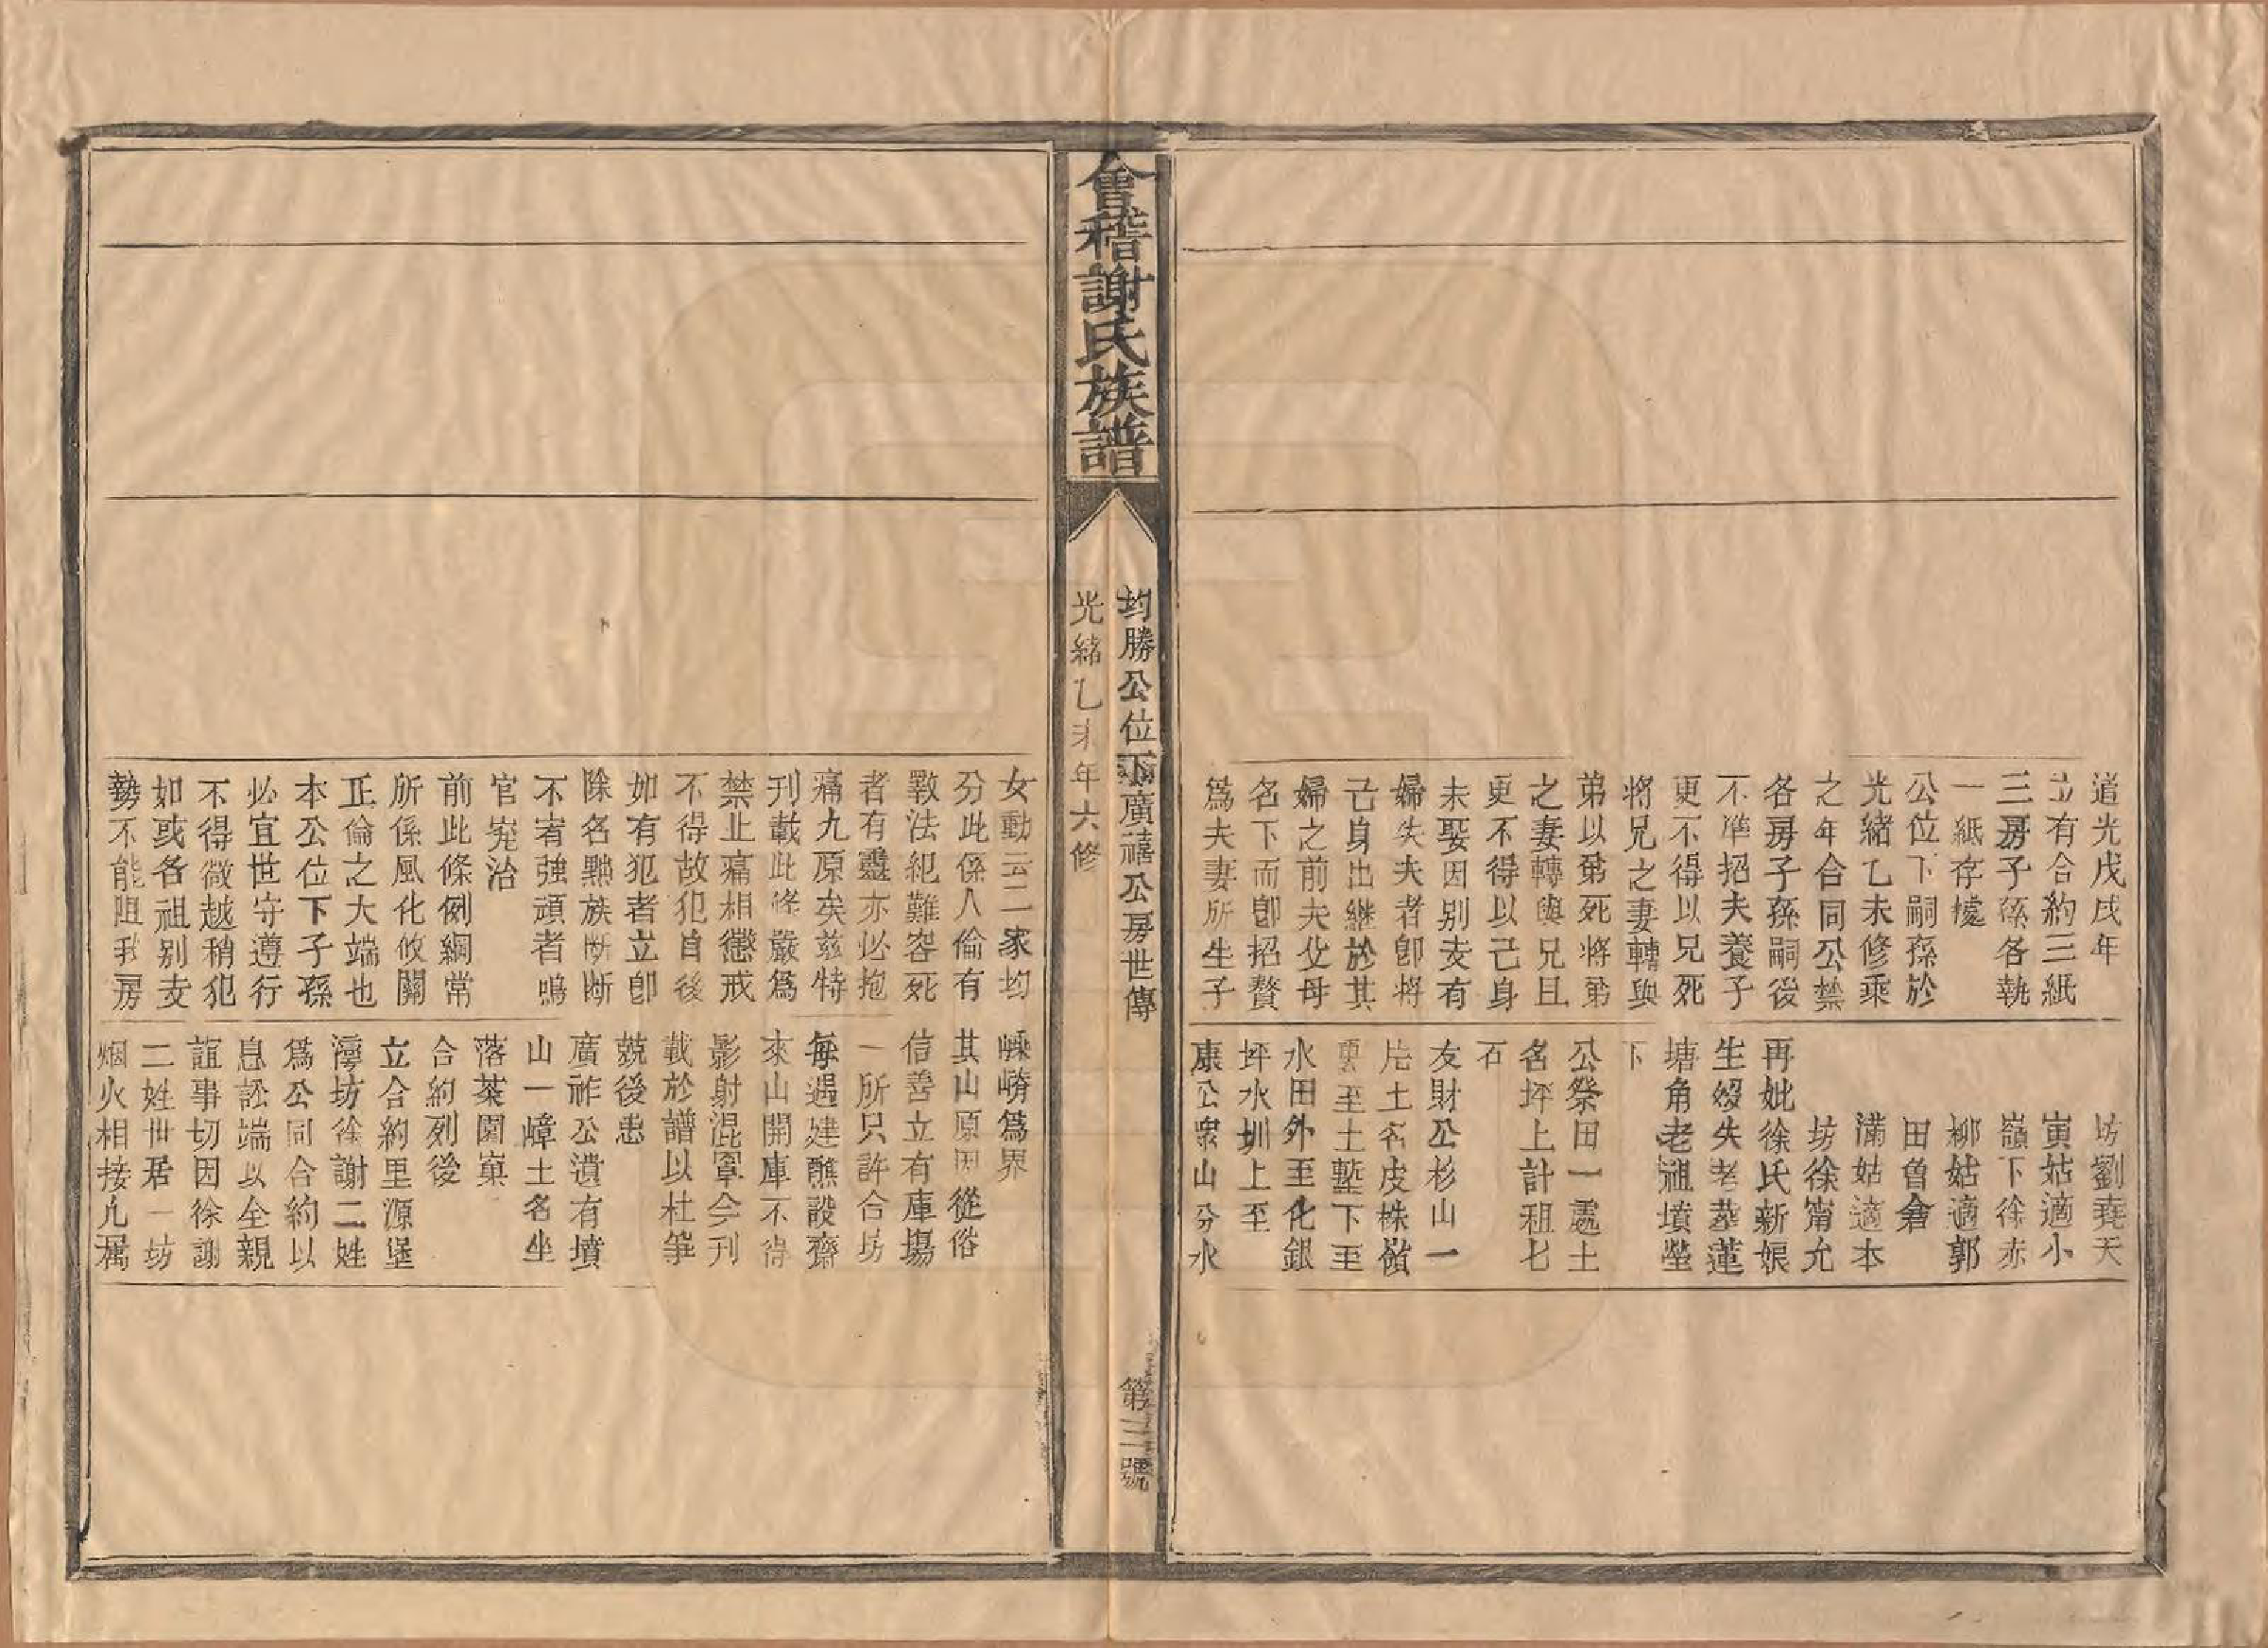 道光戊戌年
立有合約三紙
三房子孫各執
一紙存據
公位下嗣孫於
光緒乙未修乘
之年合同公禁
各房子孫嗣後
不准招夫養子
更不得以兄死
將兄之妻轉與
弟以弟死將弟
之妻轉與兄且
更不得以己身
未娶因別支有
婦失夫者即將
己身出繼於其
婦之前夫父母
名下而即招贅
爲夫妻所生子
坊劉堯天
寅姑適小
嶺下徐赤
柳姑適郭
田曾倉
滿姑適本
坊徐甯允
再妣徐氏新娘
生歿失考葬蓮
塘角老祖墳塋
下
公祭田一處土
名坪上計租七
石
友財公杉山一
片土名皮株嶺
裏至土塹下至
水田外至化銀
坪水圳上至
康公衆山分水
會稽謝氏族譜
均勝公位下廣禧公房世傳
第三號
光緒乙未年六修
女動云二家均
分此係人倫有
斁法紀難容死
者有靈亦必抱
痛九原矣茲特
刊載此條嚴爲
禁止痛相懲戒
不得故犯自後
如有犯者立即
除名黜族斷斷
不宥強頑者鳴
官宄治
前此條例綱常
所係風化攸關
正倫之大端也
本公位下子孫
必宜世守遵行
不得微越稍犯
如或各祖別支
勢不能阻我房
嵊嵴爲界
其山原因從俗
信善立有庫塲
一所只許合坊
每遇建醮設齋
來山開庫不得
影射混窜今刊
載於譜以杜爭
兢後患
廣祚公遺有墳
山一嶂土名坐
落茶園窠
合約列後
立合約里源堡
灣坊徐謝二姓
爲公同合約以
息訟端以全親
誼事切因徐謝
二姓世居一坊
烟火相接凢屬